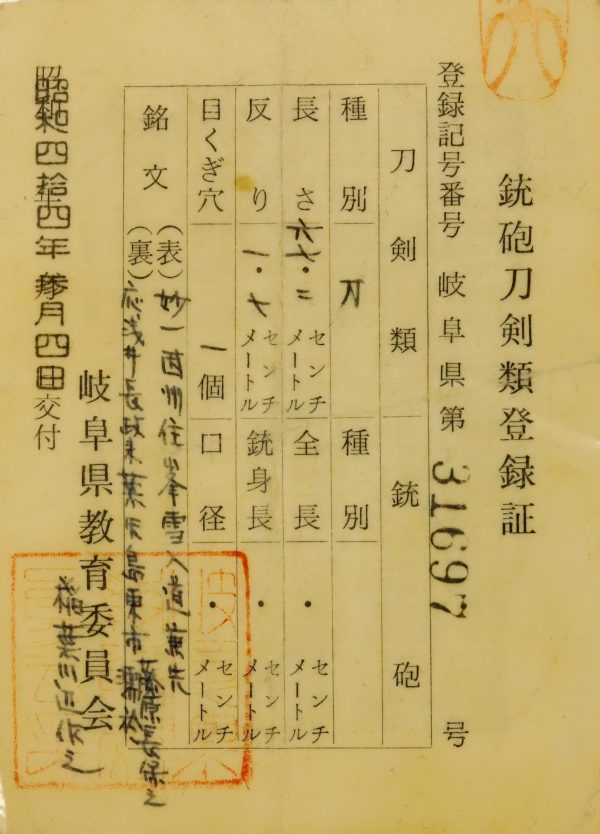 銃砲刀剣類登録証
登録記号番号 岐阜県第 31697 号
刀剣類 銃砲
種別 刀 種別
長さ 六六・二 センチメートル 全長 ・ センチメートル
反り 一・七 センチメートル 銃身長 ・ センチメートル
目くぎ穴 一個 口径 ・ センチメートル
銘文 (表) 妙一西州住峯雪入道兼先
(裏) 応浅井長政末葉 島東市
藤原長保之
昭和四拾四年参月四日交付
岐阜県教育委員会
稲葉川辺作之